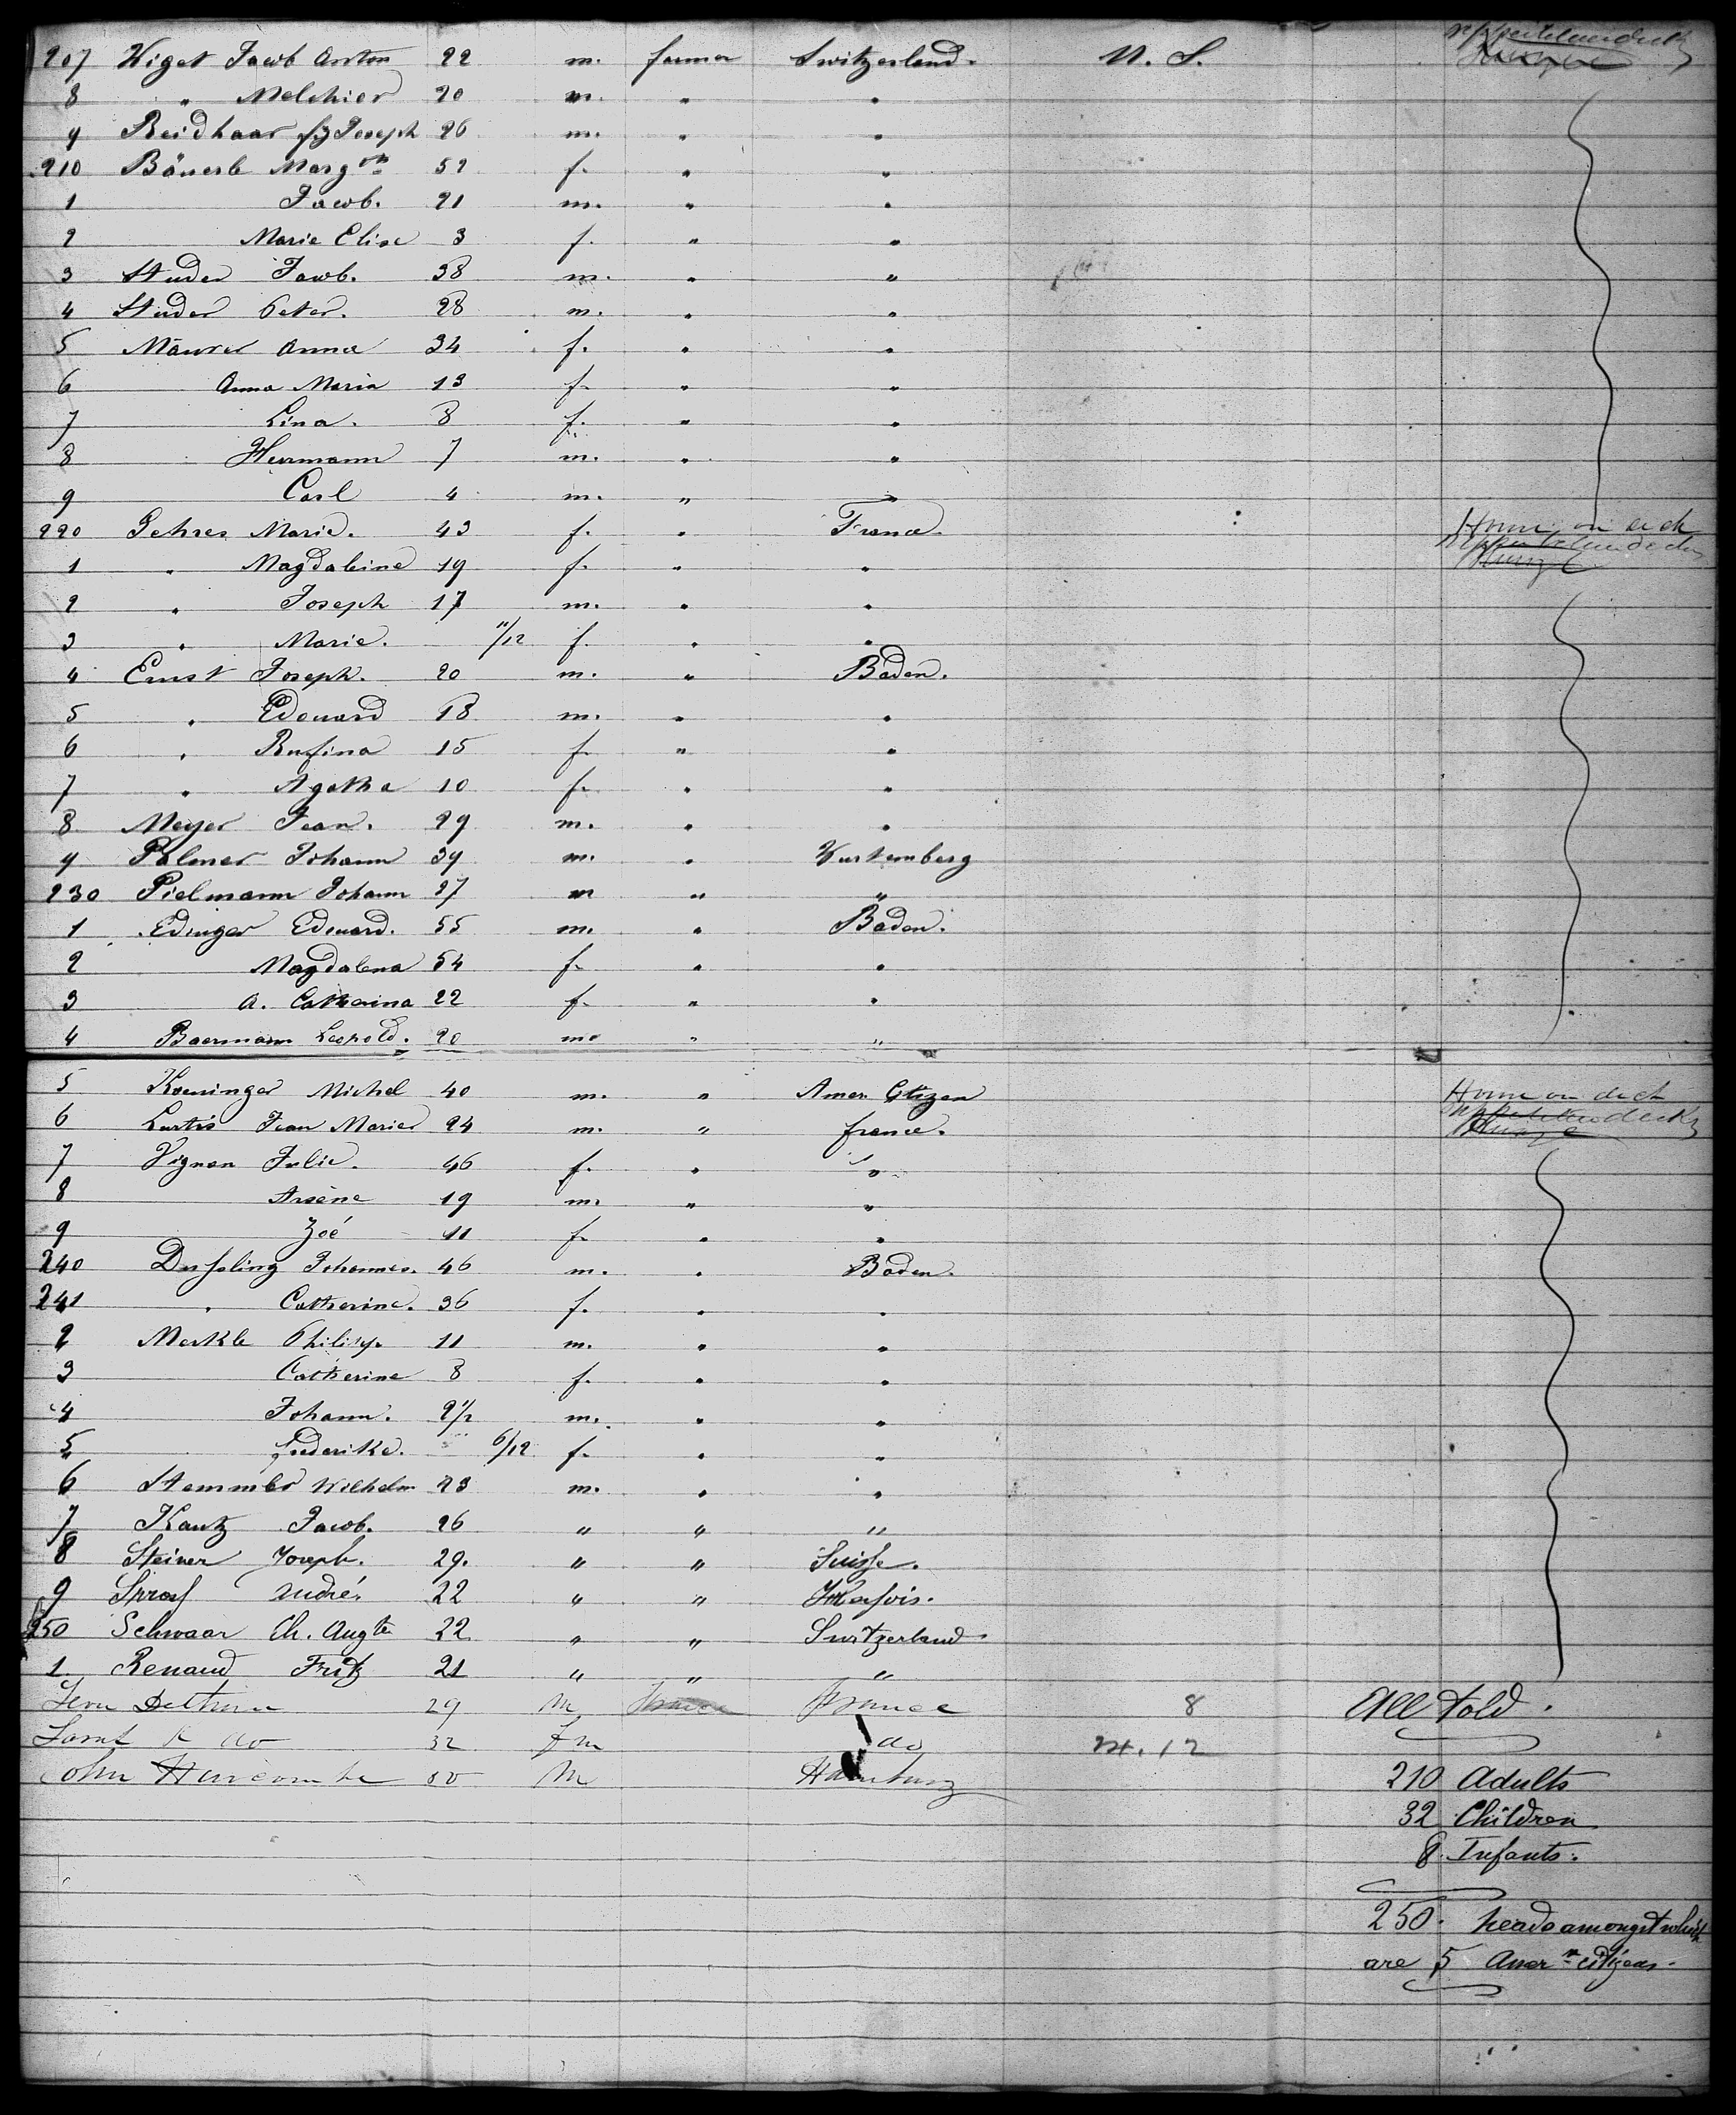 207 Wiget Jacob Anton 22 m. farmer Switzerland. U. S.
8 " Melchior 20 m. " "
9 Reidhaar Joseph 26 m. " "
210 Bäuerle Marg 52 f. " "
1 Jacob. 21 m. " "
2 Marie Elise 3 f. " "
3 Studer Jacob. 38 m. " "
4 Studer Peter. 28 m. " "
5 Maurer Anna 34 f. " "
6 Anna Maria 13 f. " "
7 Lina. 8 f. " "
8 Hermann 7 m. " "
9 Carl 4 m. " "
220 Gehres Marie. 43 f. " France. on deck
1 " Magdaleine 19 f. " "
2 " Joseph 17 m. " "
3 " Marie. 11/12 f. " "
4 Ernst Joseph. 20 m. " Baden.
5 " Edouard 18 m. " "
6 " Rufina 15 f. " "
7 " Agatha 10 f. " "
8 Meyer Jean. 29 m. " "
9 Palmer Johann 39 m. " Wurtemberg
230 Pielmann Johann 27 m " "
1 Edinger Edouard. 55 m. " Baden.
2 Magdalena 54 f. " "
3 A. Catharina 22 f. " "
4 Baermann Leopold. 20 m. " "
5 Koeninger Michel 40 m. " Amer. Citizen on deck
6 Lurtis Jean Marie 24 m. " france.
7 Vignon Julie. 46 f. " "
8 Arsène 19 m. " "
9 Zoé 11 f. " "
240 Johannes. 46 m. " Baden.
241 " Catherine. 36 f. " "
2 Merkle Philipp 11 m. " "
3 Catherine 8 f. " "
4 Johann. 2 1/2 m. " "
5 Frederike. 6/12 f. " "
6 Stemmler Wilhelm 23 m. " "
7 Kautz Jacob. 26 " " "
8 Steiner Joseph. 29. " " Suisse.
9 André. 22 " "
250 Schwaar Ch. Augte 22 " " Switzerland
1 Renaud Fritz 21 " " "
29 M France 8 All told.
do 32 fm do 24. 12
John M Hamburg
210 Adults
32 Children
8 Infants.
250. heads amongst which
are 5 Amern citizens.